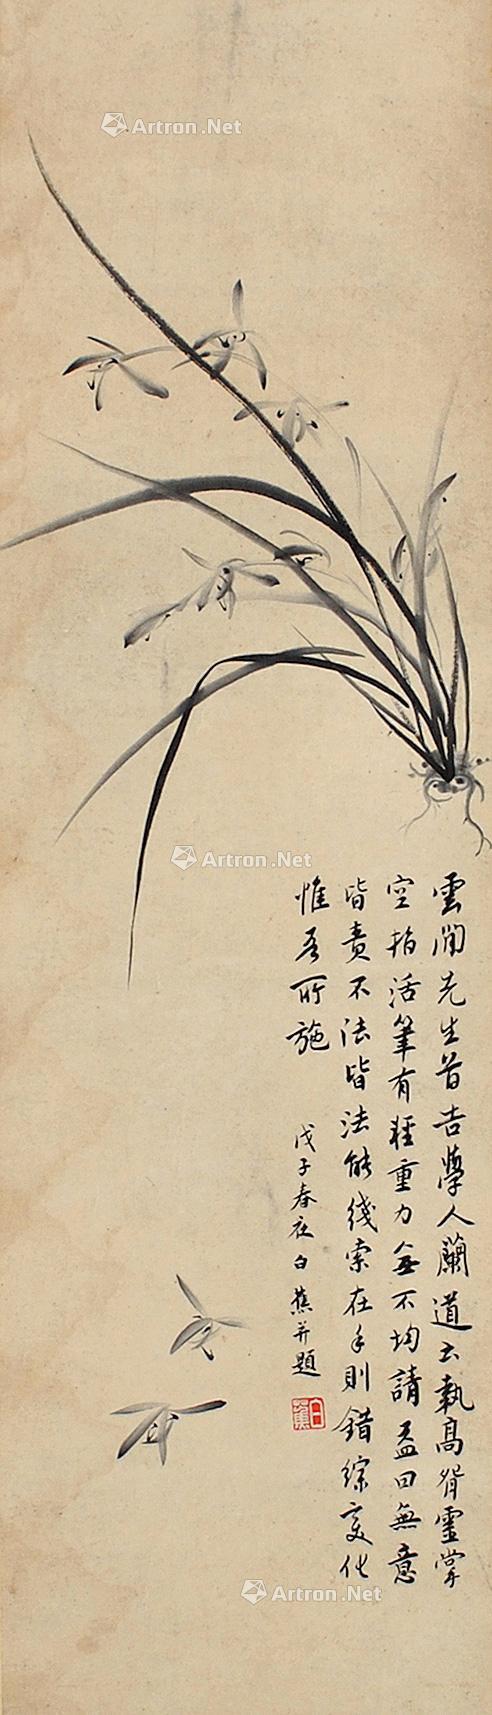 Artron.Net
Artron.Net
雲間先生昔告學人蘭道云執高臂靈掌
空指活筆有輕重力無不均請益曰無意
皆責不法皆法能綫索在手則錯綜變化
惟吾所施
戊子春夜白蕉并題
白蕉
Artron.Net